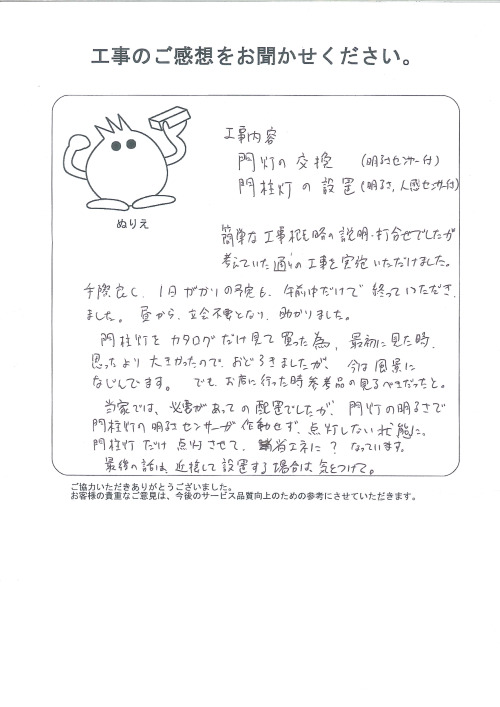 工事のご感想をお聞かせください。
工事内容
門灯の交換 (明るさセンサー付)
門柱灯の設置(明るさ,人感センサー付)
ぬりえ
簡単な工事概略の説明・打合せでしたが
考えていた通りの工事を実施いただけました。
手際良く、1日がかりの予定も、午前中だけで終っていただき、
ました。昼から、立会不要となり、助かりました。
門柱灯をカタログだけ見て買った為、最初に見た時、
思ったより大きかったので、おどろきましたが、今は風景に
なじんでます。でも、お店に行った時参考品の見るべきだったと。
当家では、必要があっての配置でしたが、門灯の明るさで
門柱灯の明るさセンサーが作動せず、点灯しない状態に。
門柱灯だけ点灯させて、省エネに?なっています。
最後の話は、近接して設置する場合は気をつけて。
ご協力いただきありがとうございました。
お客様の貴重なご意見は、今後のサービス品質向上のための参考にさせていただきます。